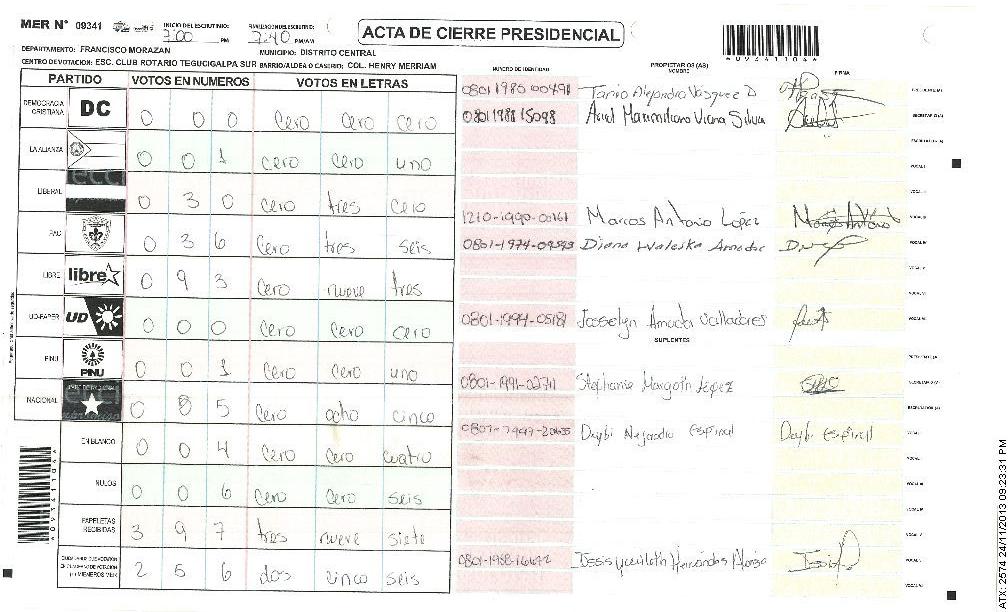 MER N° 09341
INICIO DEL ESCRUTINIO: 7:00 PM
FINALIZACION DEL ESCRUTINIO: 7:40 PM/AM
ACTA DE CIERRE PRESIDENCIAL
DEPARTAMENTO: FRANCISCO MORAZAN
MUNICIPIO: DISTRITO CENTRAL
CENTRO DE VOTACION: ESC. CLUB ROTARIO TEGUCIGALPA SUR BARRIO/ALDEA O CASERIO: COL. HENRY MERRIAM
PARTIDO VOTOS EN NUMEROS VOTOS EN LETRAS
DEMOCRACIA CRISTIANA DC 0 0 0 Cero Cero Cero
LA ALIANZA 0 0 1 Cero Cero uno
LIBERAL 0 3 0 Cero tres Cero
PAC 0 3 6 Cero tres seis
LIBRE libre 0 9 3 Cero nueve tres
UD-FAPER UD 0 0 0 Cero Cero Cero
PINU PINU 0 0 1 Cero Cero uno
NACIONAL 0 8 5 Cero ocho cinco
EN BLANCO 0 0 4 Cero Cero cuatro
NULOS 0 0 6 Cero Cero seis
PAPELETAS RECIBIDAS 3 9 7 tres nueve siete
2 5 6 dos cinco seis
NUMERO DE IDENTIDAD
PROPIETARIOS (AS)
NOMBRE
FIRMA
0801 1985 00491 Tania Alejandra Vasquez D
PRESIDENTE (A)
0801 1988 15098 Ariel Maximiliano Viana Silva
SECRETARIO (A)
ESCRUTADOR (A)
VOCAL I
VOCAL II
1210-1990-00161 Marcos Antonio López
VOCAL III
Diana Waleska Amador
VOCAL IV
VOCAL V
Josselyn Amador Valladares
SUPLENTES
PRESIDENTE (A)
0801-1991-02711 Stephanie Margoth López
SECRETARIO (A)
ESCRUTADOR (A)
Espinal
VOCAL I
VOCAL II
VOCAL III
ATX: 2574 24/11/2013 09:23:31 PM